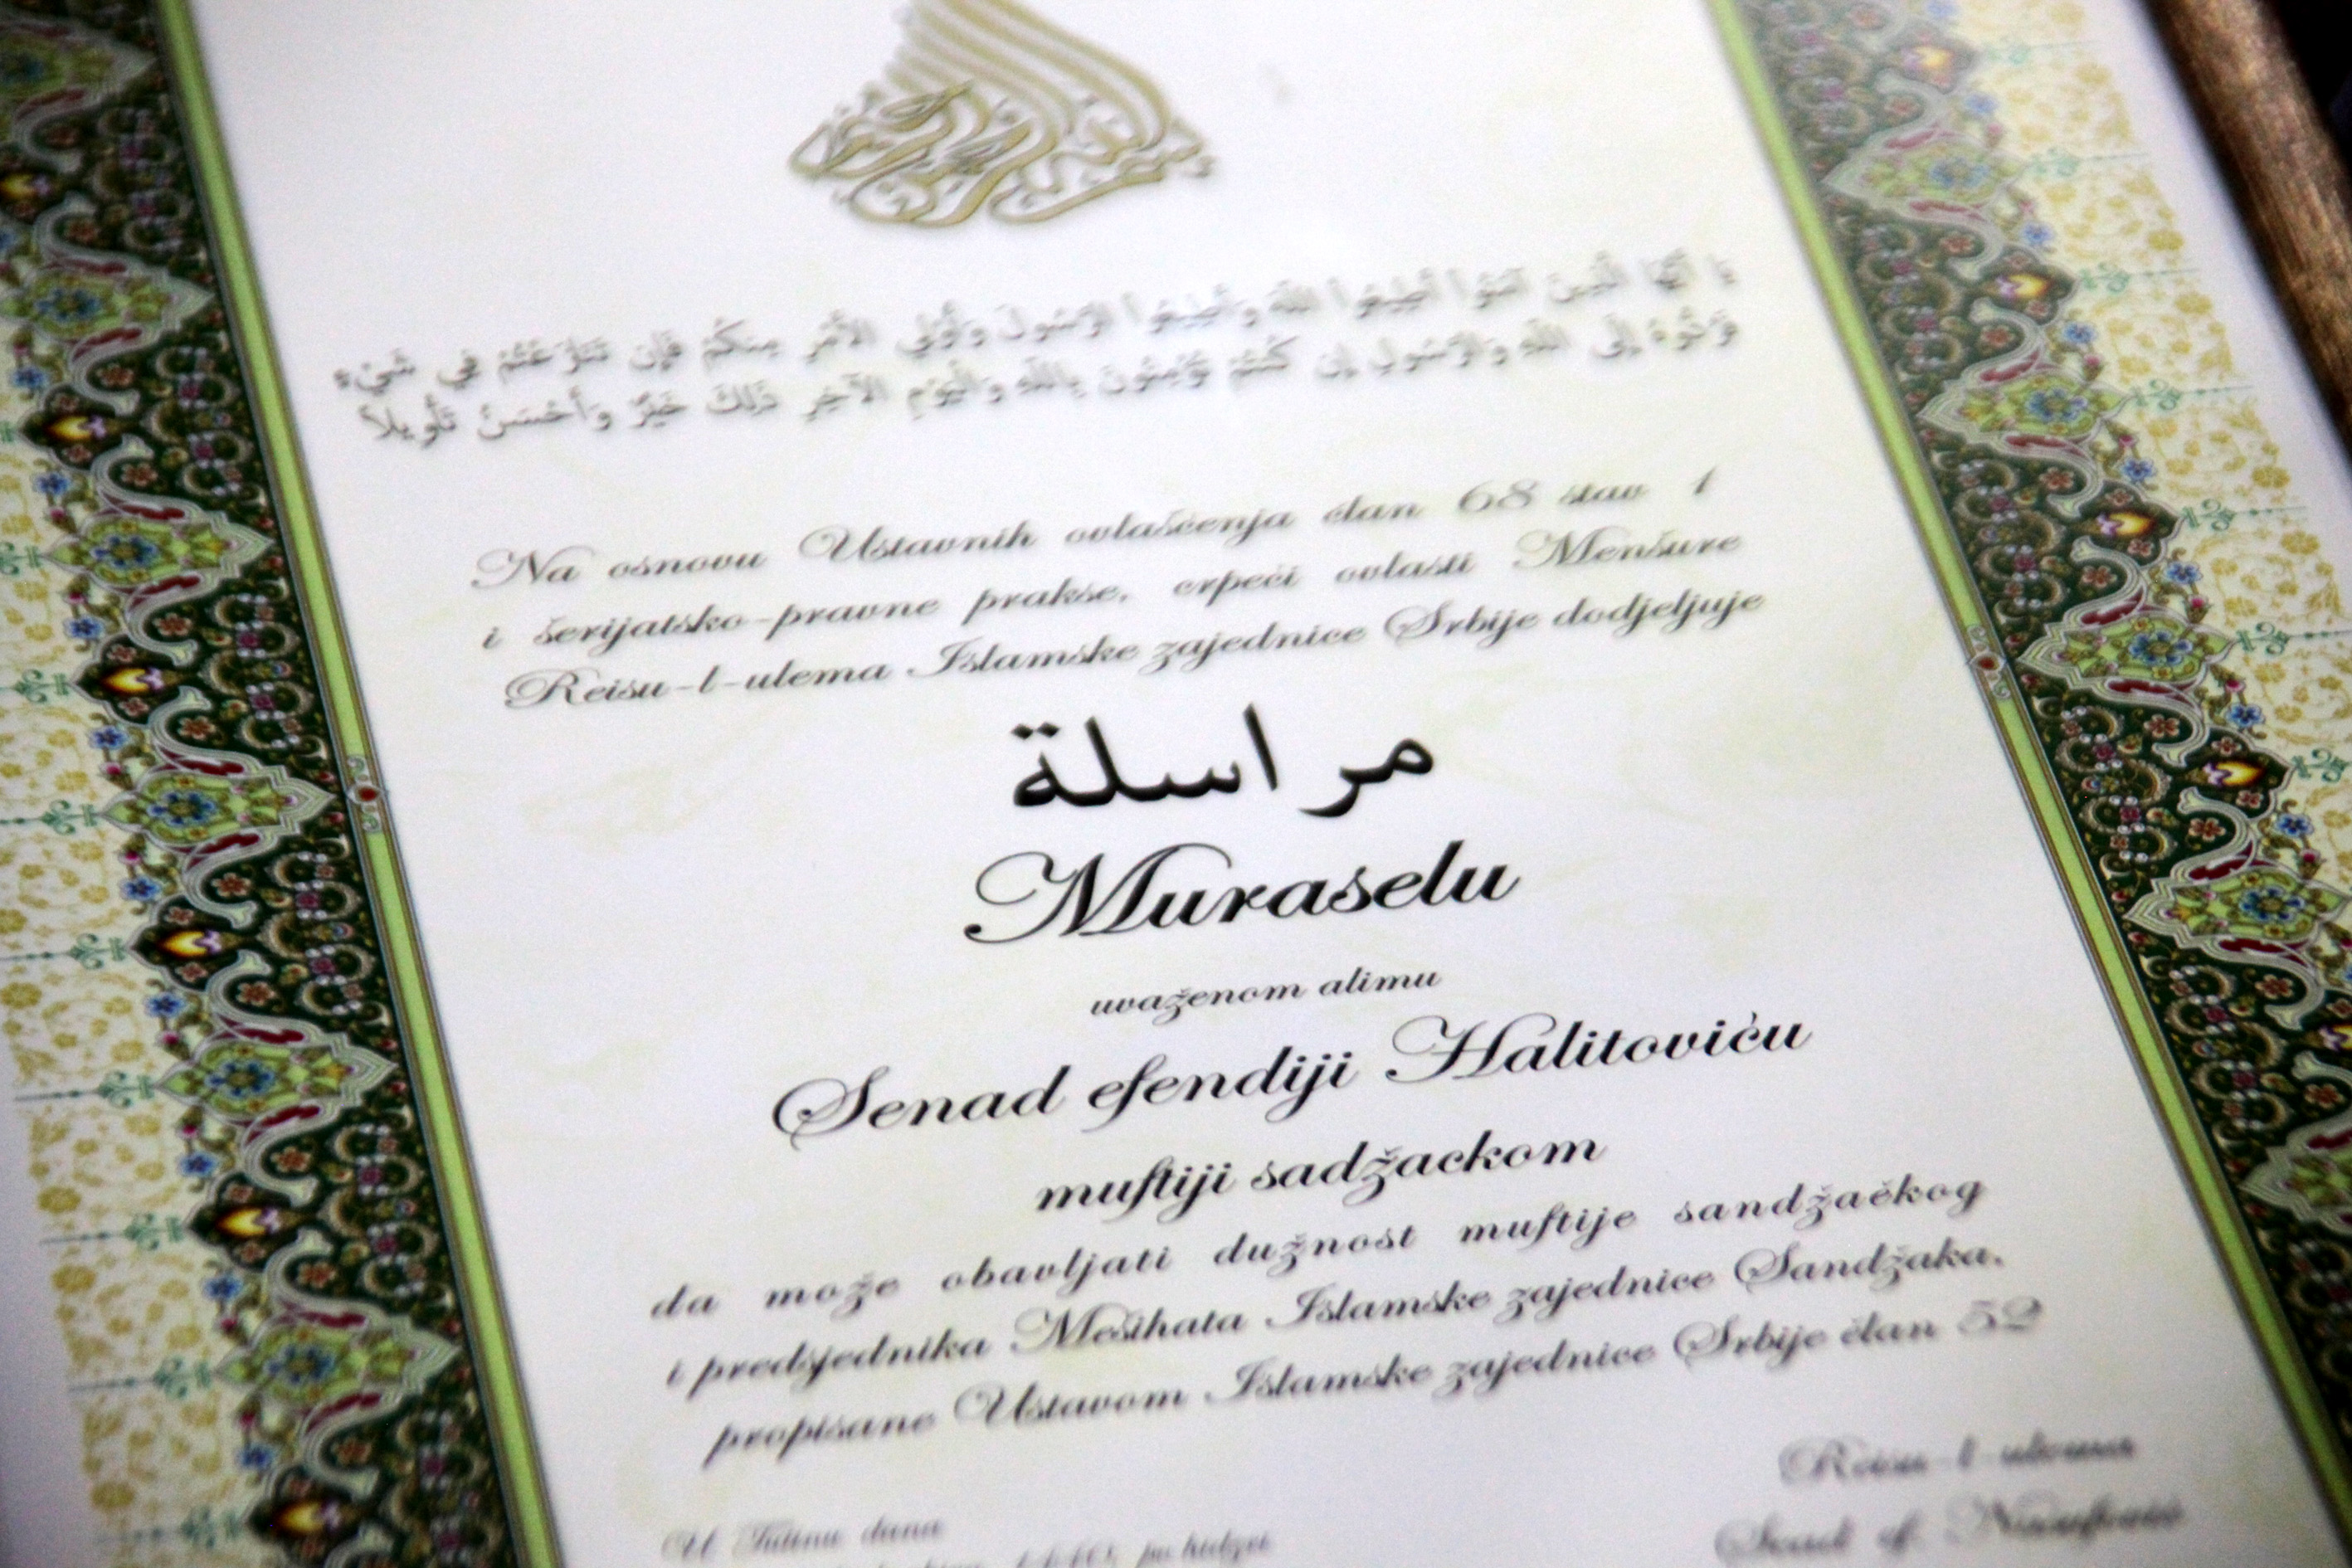 يَا أَيُّهَا الَّذِينَ آمَنُوا أَطِيعُوا اللَّهَ وَأَطِيعُوا الرَّسُولَ وَأُوْلِي الأَمْرِ مِنكُمْ فَإِن تَنَازَعْتُمْ فِي شَيْءٍ
فَرُدُّوهُ إِلَى اللَّهِ وَالرَّسُولِ إِن كُنتُمْ تُؤْمِنُونَ بِاللَّهِ وَالْيَوْمِ الآخِرِ ذَلِكَ خَيْرٌ وَأَحْسَنُ تَأْوِيلاً
Na osnovu Ustavnih ovlašćenja član 68 stav 1
i šerijatsko-pravne prakse, crpeći ovlasti Menšure
Reisu-l-ulema Islamske zajednice Srbije dodjeljuje
مراسلة
Muraselu
uvaženom alimu
Senad efendiji Halitoviću
muftiji sadžackom
da može obavljati dužnost muftije sandžačkog
i predsjednika Mešihata Islamske zajednice Sandžaka,
propisane Ustavom Islamske zajednice Srbije član 52
Reisu-l-ulema
U Tutinu dana
po hidžri